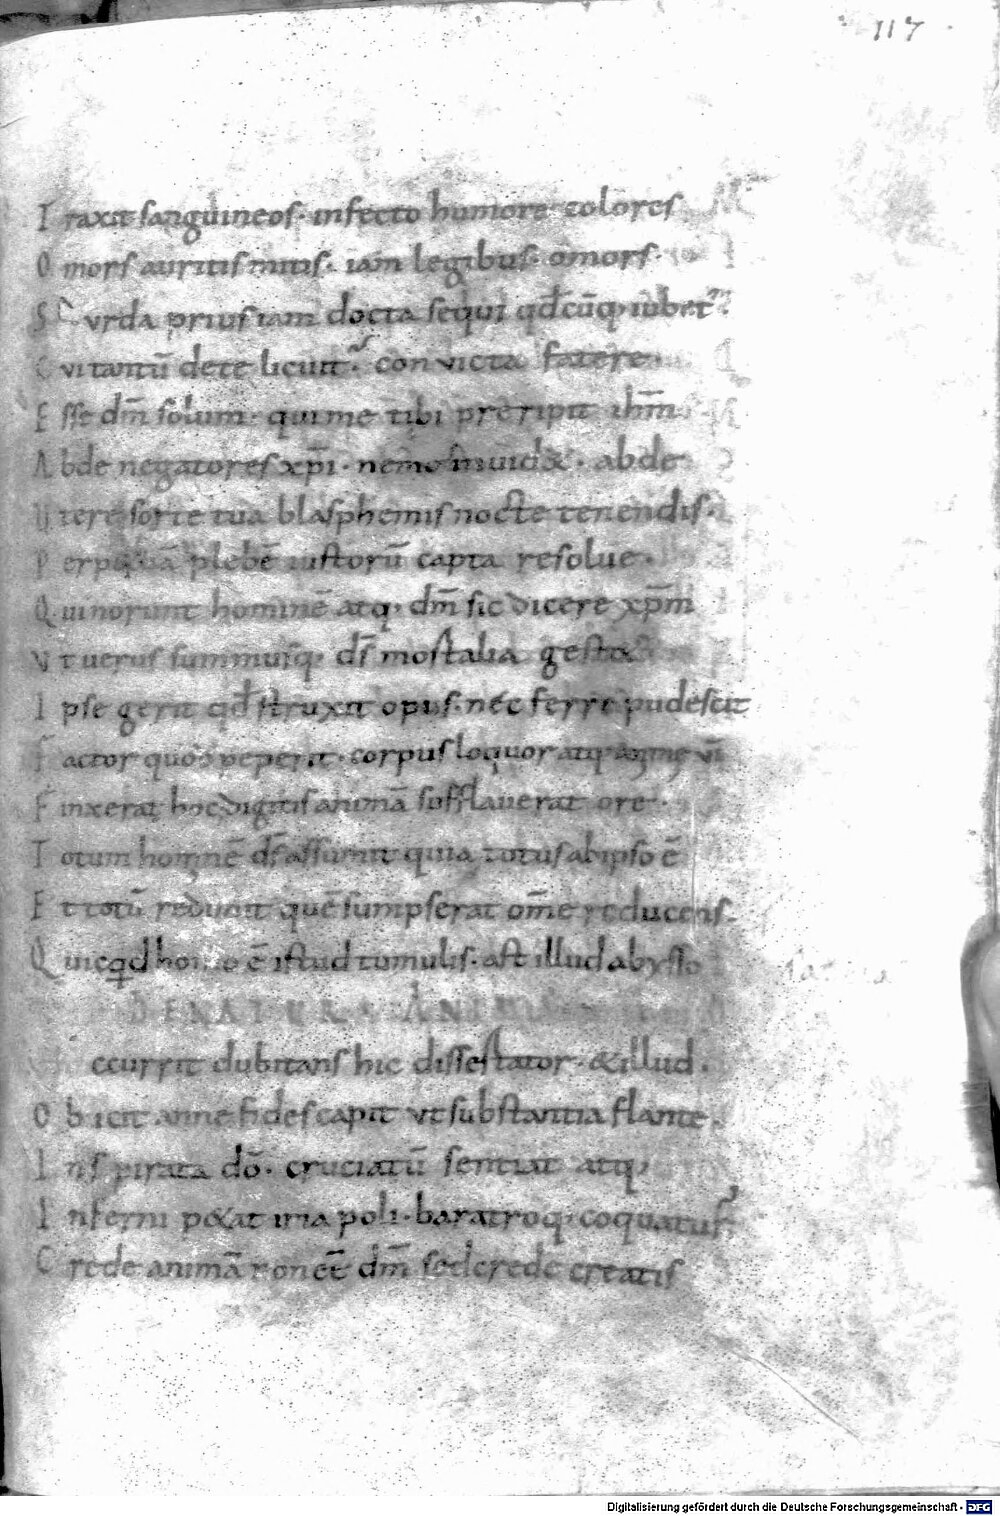 117
Traxit sanguineos· infecto humore colores
O mors auritis mitis· iam legibus· o mors·
Surda prius iam docta sequi qđ cūq; iubet᷑·
Cvi tantū de te licuit· convicta fatere
Esse dm̄ solum· qui me tibi preripit ih̄m
Abde negatores xp̄i· nemo inuidet· abde
tere sorte tua blasphemis nocte tenendis·
plebē iustorū capta resolue·
Qui norunt hominē atq; dm̄ sic dicere xp̄m
Vt uerus summusq; ds̄ mortalia gestet
Ipse gerit qđ struxit opus· nec ferre pudescit
Factor quod peperit· corpus loquor atq;
Finxerat hoc digitis animā sufflauerat ore·
Totum hominē ds̄ assumit quia totus ab ipso ē
Et totū redimit quē sumpserat om̄e reducens·
Quicqd homo ē istud tumulis· ast illud abysso
DE NATURA ANIMAE
ccurrit dubitans hic dissertator· & illud·
Obicit· anne fides capit vt substantia flante·
Inspirata dō· cruciatū sentiat atq;
Inferni petat ima poli· baratroq; coquatur
Crede animā non eē dm̄ sed crede creatis
Digitalisierung gefördert durch die Deutsche Forschungsgemeinschaft - DFG